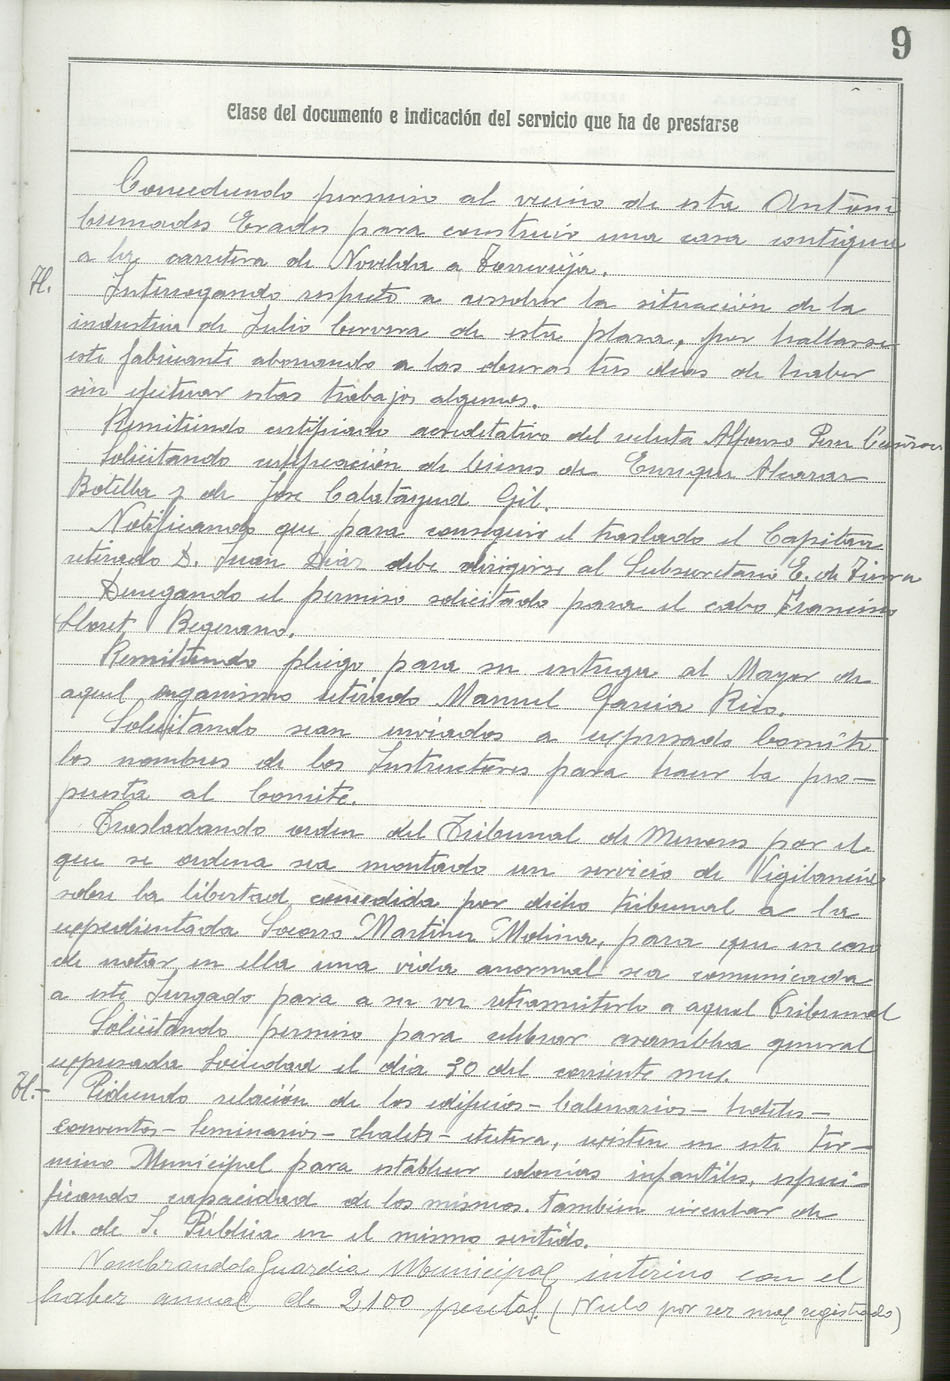 9
Clase del documento e indicación del servicio que ha de prestarse
Concediendo permiso al vecino de esta Antoni
Cremades Erades para construir una casa contigua
a la carretera de Novelda a Torrevieja.
H. Interrogando respecto a resolver la situación de la
industria de Julio Cervera de esta plaza, por hallarse
este fabricante abonando a las obreras tres dias de haber
sin efectuar estas trabajos algunos.
Remitiendo certificado acreditativo del recluta Alfonso Perez
Solicitando de bienes de Enrique Alcaraz
Botella y de Jose Calatayud Gil.
Notificando que para conseguir el traslado el Capitan
retirado D. Juan Diaz debe dirigirse al Subsecretario E. de Tierra
Denegando el permiso solicitado para el cabo Francisco
Lloret Begerano.
Remitiendo pliego para su entrega al Mayor de
aquel organismo retirado Manuel Garcia Rico.
Solicitando sean enviados a expresado Comité
los nombres de los Instructores para hacer la pro-
puesta al Comite.
Trasladando orden del Tribunal de Menores por el
que se ordena sea montado un servicio de Vigilancia
sobre la libertad concedida por dicho tribunal a la
expedientada Socorro Martinez Molina, para que en caso
de notar en ella una vida anormal sea comunicada
a este Juzgado para a su vez retrasmitirlo a aquel Tribunal
Solicitando permiso para celebrar asamblea general
expresada Sociedad el dia 30 del corriente mes.
H.- Pidiendo relación de los edificios - balnearios - hoteles -
conventos - Seminarios - chalets - etcetera, existen en este tér-
mino Municipal para establecer colonias infantiles, especi-
ficando capacidad de los mismos. tambien circular de
M. de I. Publica en el mismo sentido.
Nombrandole Guardia Municipal interino con el
haber anual de 2100 pesetas. (Nulo por ser mal registrado)